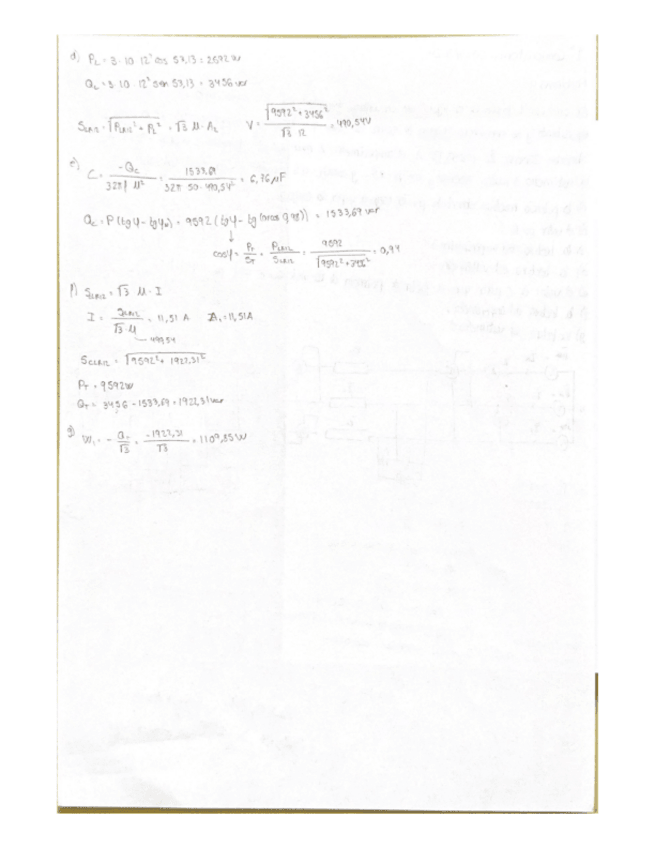 d) PL = 3 · 10 · 12² cos 53,13 = 2592 W
QL = 3 · 10 · 12² sen 53,13 = 3456 var
= √3 U · AL V = √(9592² + 3456²) / √3 12 = 490,54V
e) C = -Qc / 3 2π f U² = 1533,69 / 3 2π 50 · 490,54² = 6,76 μF
Qc = P (tg φ - tg φ) = 9592 (tg φ - tg (arcos 0,98)) = 1533,69 var
↓
cos φ = PT / ST = = 9592 / √(9592² + 3456²) = 0,94
f) = √3 · U · I
I = / √3 U = 11,51 A A1 = 11,51A
490,54
= √(9592² + 1922,31²)
PT = 9592 W
QT = 3456 - 1533,69 = 1922,31 var
g) W1 = - QT / √3 = / √3 = 1109,85 W